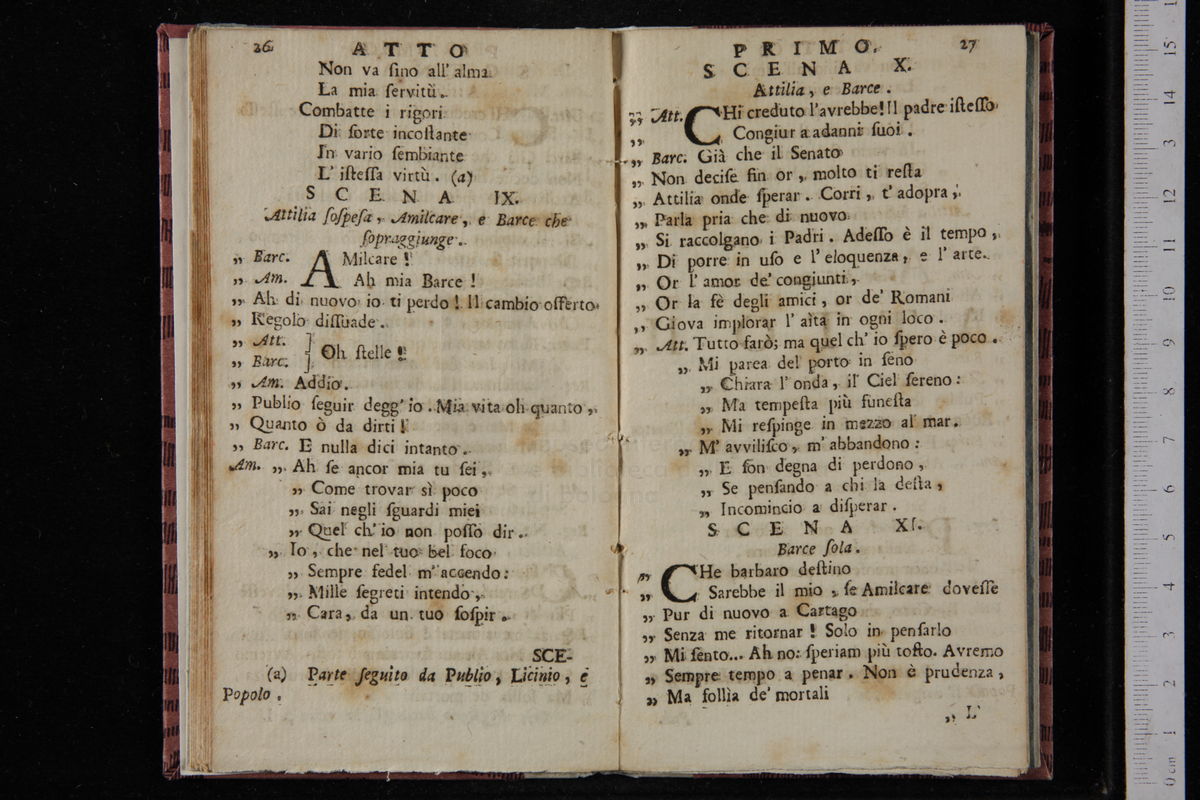 26 ATTO
Non va ſino all' alma
La mia ſervitù.
Combatte i rigori
Di ſorte incoſtante
In vario ſembiante
L' iſteſſa virtù. (a)
SCENA IX.
Attilia ſoſpeſa, Amilcare, e Barce che
ſopraggiunge.
„ Barc. AMilcare!
„ Am. Ah mia Barce!
„ Ah di nuovo io ti perdo! Il cambio offerto
„ Regolo diſſuade.
„ Att.
„ Barc. } Oh ſtelle!
„ Am. Addio.
„ Publio ſeguir degg' io. Mia vita oh quanto,
„ Quanto ò da dirti!
„ Barc. E nulla dici intanto.
Am. „ Ah ſe ancor mia tu ſei,
„ Come trovar sì poco
„ Sai negli ſguardi miei
„ Quel ch' io non poſſo dir.
„ Io, che nel tuo bel foco
„ Sempre fedel m' accendo:
„ Mille ſegreti intendo,
„ Cara, da un tuo ſoſpir.
SCE-
(a) Parte ſeguito da Publio, Licinio, e
Popolo.
PRIMO. 27
SCENA X.
Attilia, e Barce.
„ Att. CHi creduto l'avrebbe! Il padre iſteſſo
„ Congiur a adanni ſuoi.
„ Barc. Già che il Senato
„ Non deciſe fin or, molto ti reſta
„ Attilia onde ſperar. Corri, t' adopra,
„ Parla pria che di nuovo
„ Si raccolgano i Padri. Adeſſo è il tempo,
„ Di porre in uſo e l' eloquenza, e l' arte.
„ Or l' amor de' congiunti,
„ Or la fè degli amici, or de' Romani
„ Giova implorar l' aìta in ogni loco.
„ Att. Tutto farò; ma quel ch' io ſpero è poco.
„ Mi parea del porto in ſeno
„ Chiara l' onda, il Ciel ſereno:
„ Ma tempeſta più funeſta
„ Mi reſpinge in mezzo al mar.
„ M' avviliſco, m' abbandono:
„ E ſon degna di perdono,
„ Se penſando a chi la deſta,
„ Incomincio a diſperar.
SCENA XI.
Barce ſola.
„ CHe barbaro deſtino
„ Sarebbe il mio, ſe Amilcare doveſſe
„ Pur di nuovo a Cartago
„ Senza me ritornar! Solo in penſarlo
„ Mi ſento... Ah no: ſperiam più toſto. Avremo
„ Sempre tempo a penar. Non è prudenza,
„ Ma follìa de' mortali
„ L'